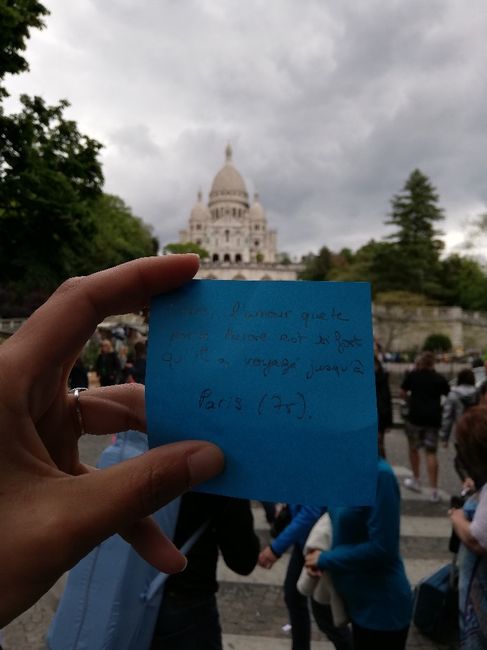 l'amour que te
porte est si fort
qu'il a voyagé jusqu'à
Paris (7r).